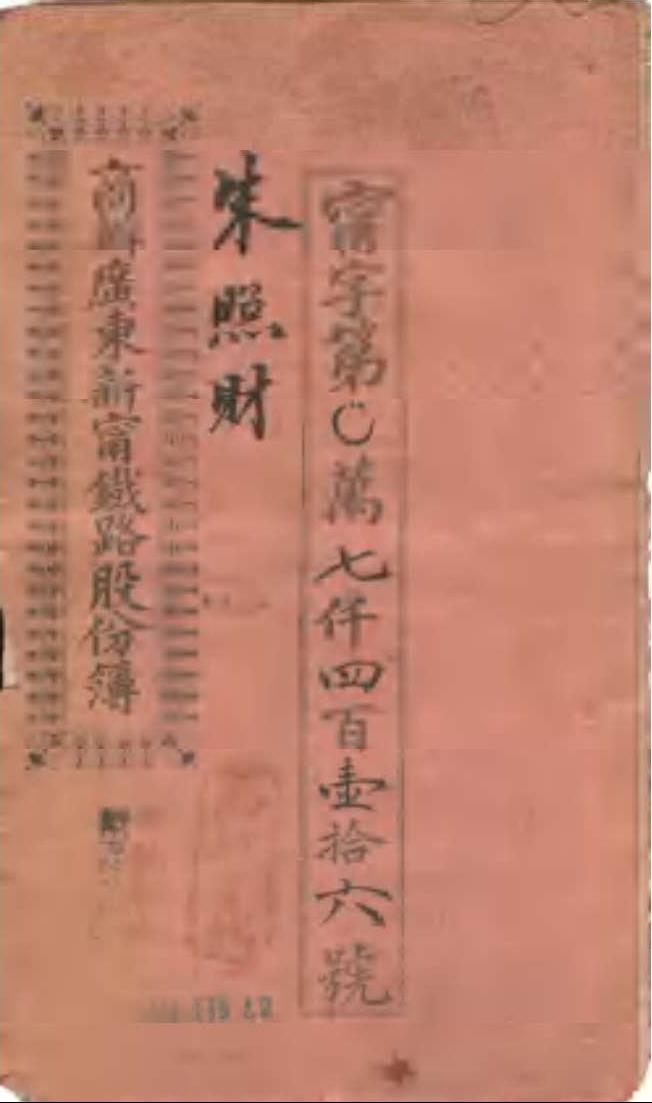 甯字第〇萬七仟四百壹拾六號
朱照財
商辦廣東新甯鐵路股份簿